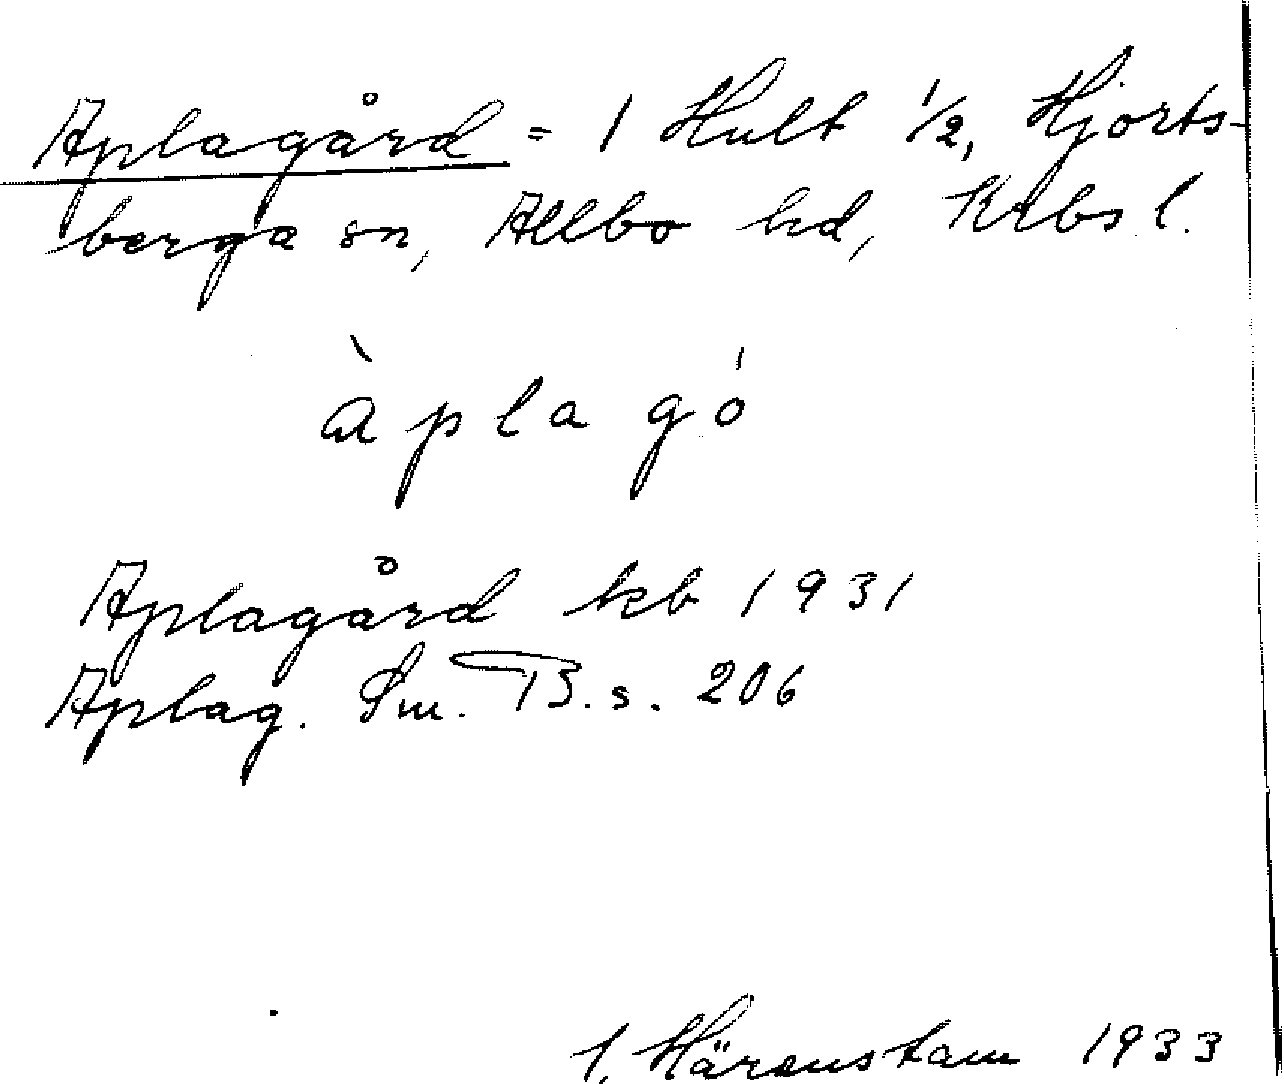 Aplagård = 1 Hult 1/2, Hjorts-
berga sn, Allbo hd, Krbs l.
àplagó
Aplagård kb 1931
Aplag. Sm. TB. s. 206
1. Härenstam 1933